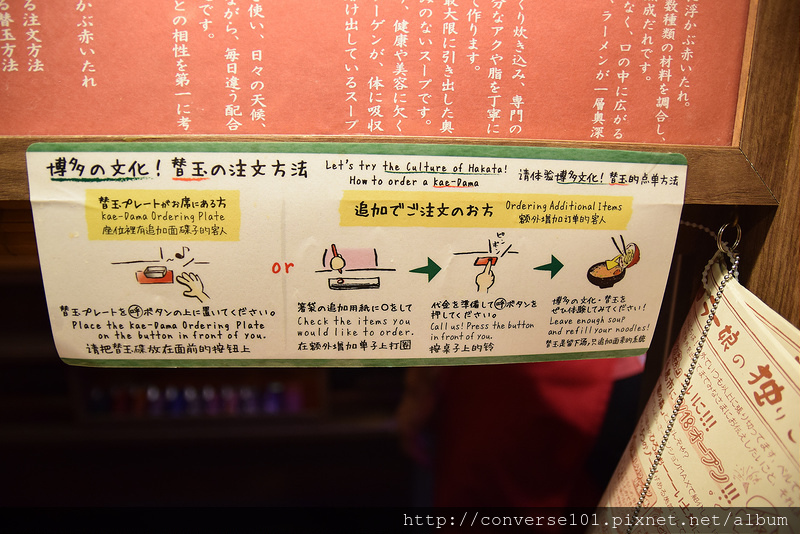 に浮かぶ赤いたれ。
数種類の材料を調合し、
成だれです。
なく、口の中に広がる
、ラーメンが一層奥深
くり炊き込み、専門の
分なアクや脂を丁寧に
て作ります。
最大限に引き出した奥
みのないスープです。
、健康や美容に欠く
ーゲンが、体に吸収
け出しているスープ
使い、日々の天候、
ながら、毎日違う配合
です。
との相性を第一に考
かぶ赤いたれ
る注文方法
る替玉方法
博多の文化！替玉の注文方法
Let's try the Culture of Hakata!
How to order a kae-Dama
请体验博多文化！替玉的点单方法
替玉プレートがお席にある方
kae-Dama Ordering Plate
座位裡有追加面碟子的客人
追加でご注文のお方
Ordering Additional Items
额外增加订单的客人
or
ピンポン
替玉プレートを呼ボタンの上に置いてください。
Place the kae-Dama Ordering Plate
on the button in front of you.
请把替玉碟放在面前的按钮上
箸袋の追加用紙に○をして
Check the items you
would like to order.
在额外增加单子上打圈
代金を準備して呼ボタンを
押してください。
Call us! Press the button
in front of you.
按桌子上的铃
博多の文化・替玉を
ぜひ体験してみてください！
Leave enough soup
and refill your noodles!
替玉是留下汤,只追加面条的系统
娘の独り
オープン!!!
http://converse101.pixnet.net/album